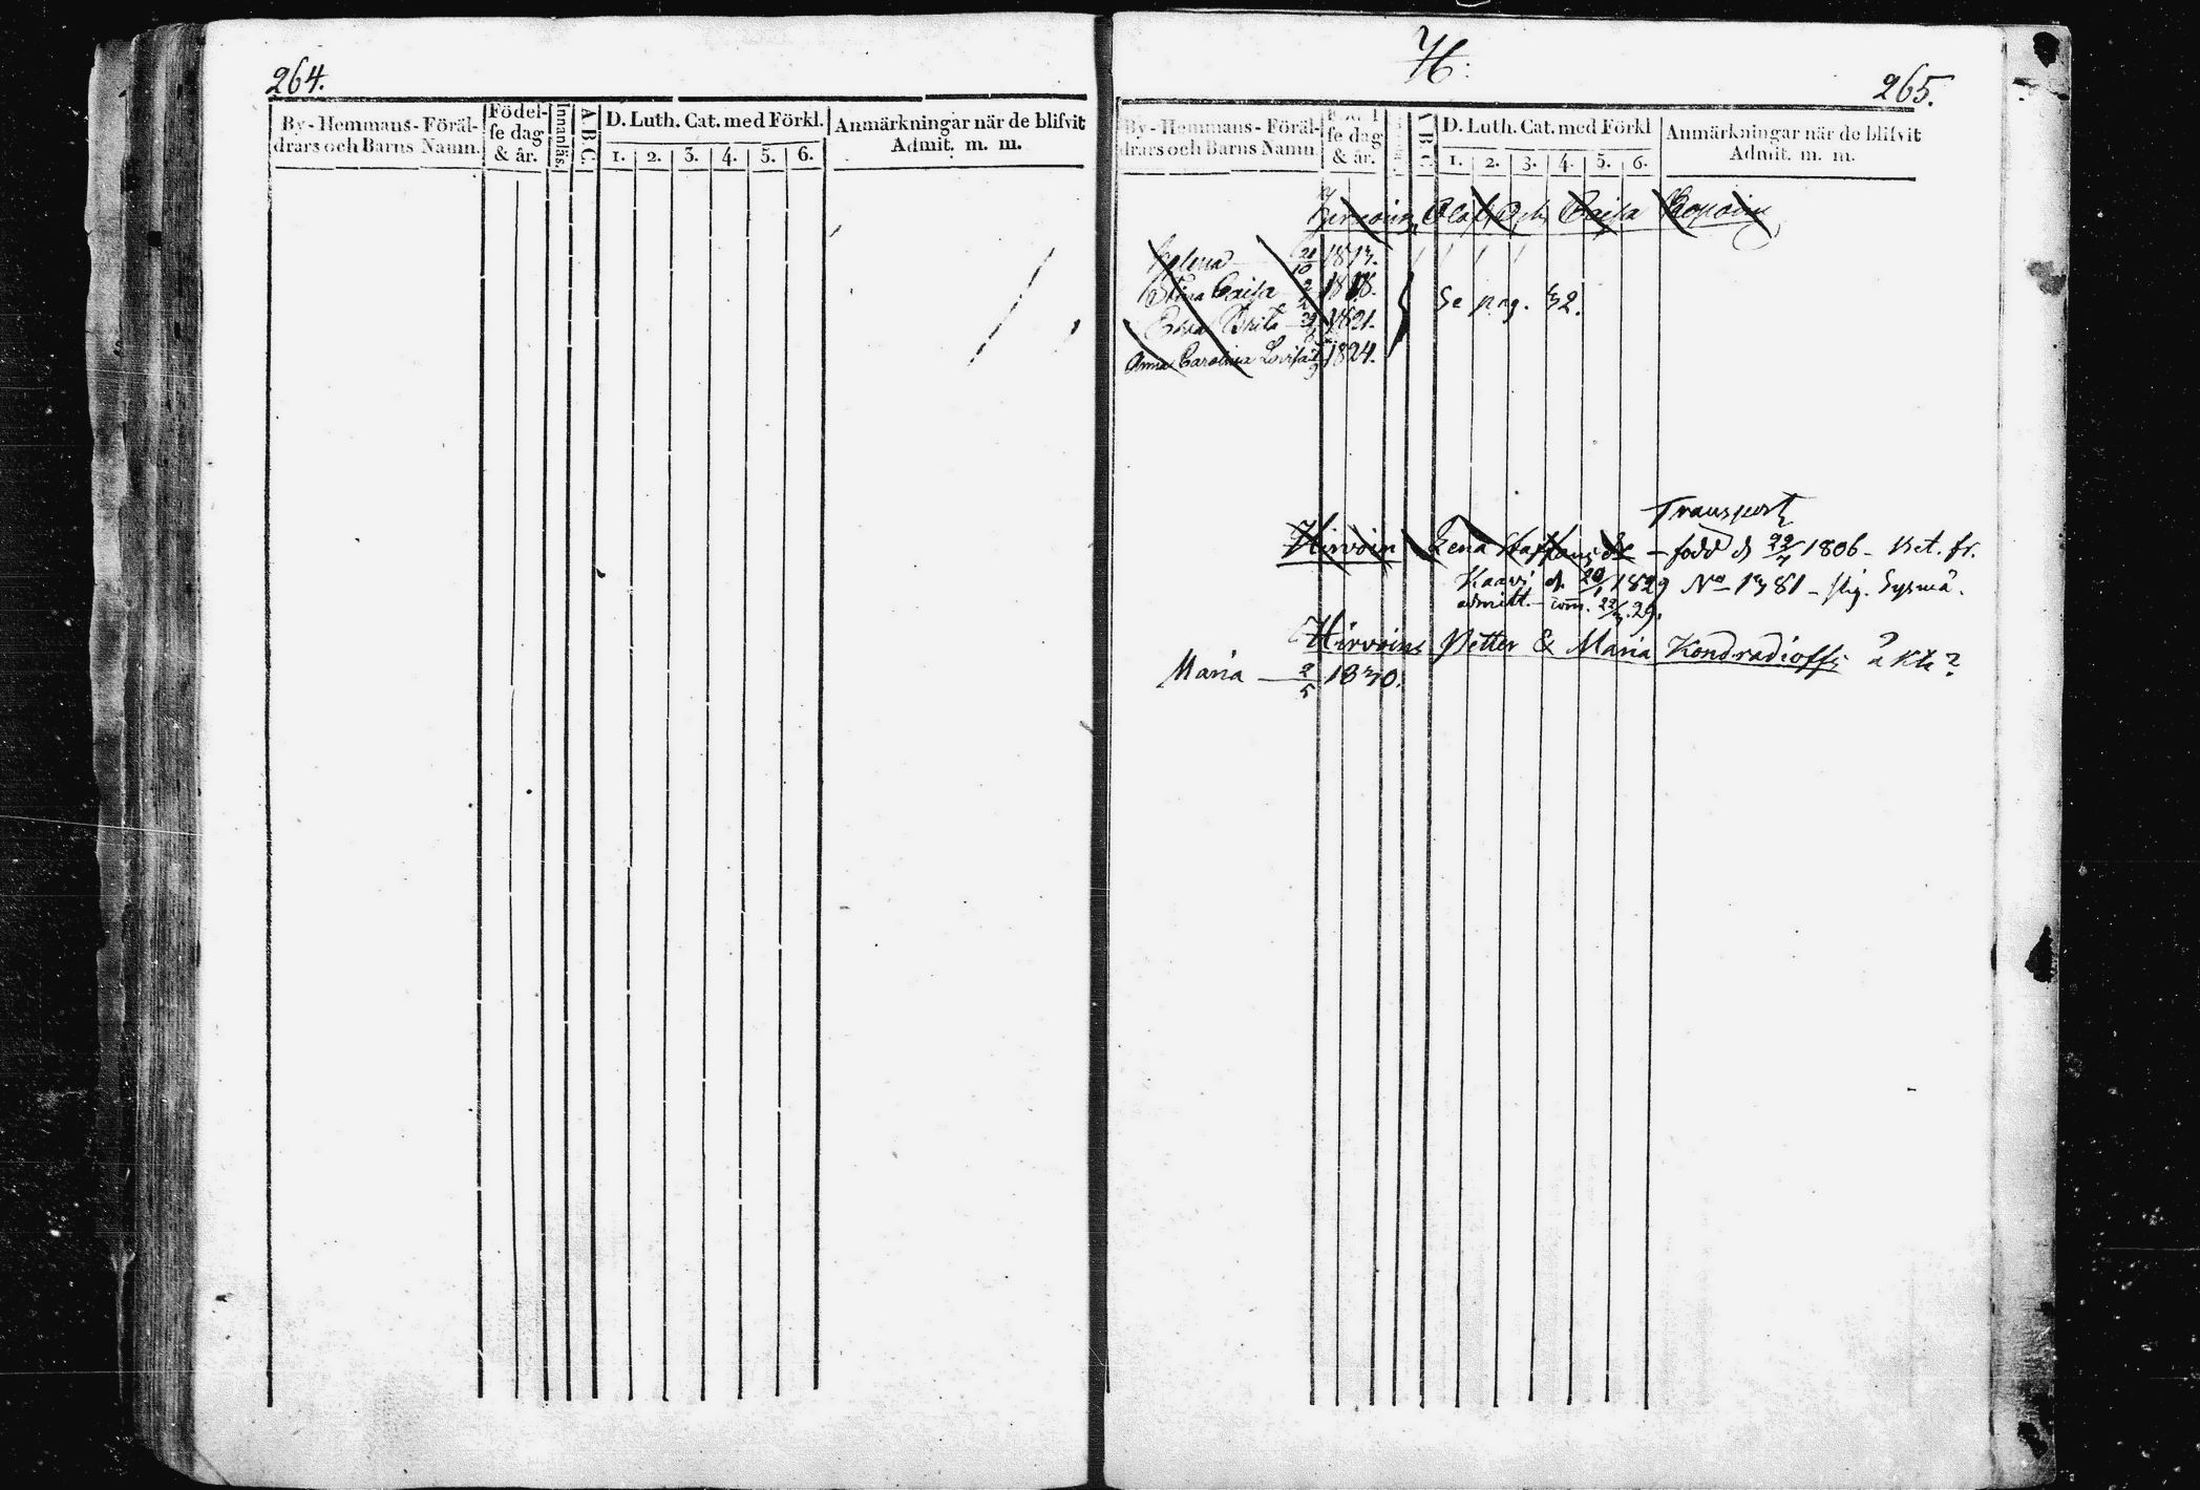 264.
By-Hemmans-Föräl-
drars och Barns Namn.
Födel-
se dag
& år.
Innanläs.
A.B.C.
D. Luth. Cat. med Förkl.
1. 2. 3. 4. 5. 6.
Anmärkningar när de blifvit
Admit. m. m.
H:
265.
By-Hemmans-Föräl-
drars och Barns Namn
se dag
& år.
A B C
D. Luth. Cat. med Förkl
1. 2. 3. 4. 5. 6.
Anmärkningar när de blifvit
Admit. m. m.
Olof Caisa
Helena 21/10 1813.
Stina Caisa 1818.
Brita 1821.
Se pag. 32.
Anna Carolina Lovisa 1824.
Transport
Hirvoin Lena Staffans dr - född d 22/7 1806 - Bet. fr.
Kaavi d. 20/1 1829 No 1381 - Sysmä.
admitt. - com. 22/3. 29.
Hirvoin Petter & Maria Kondradioffs à Kk?
Maria 2/5 1830.